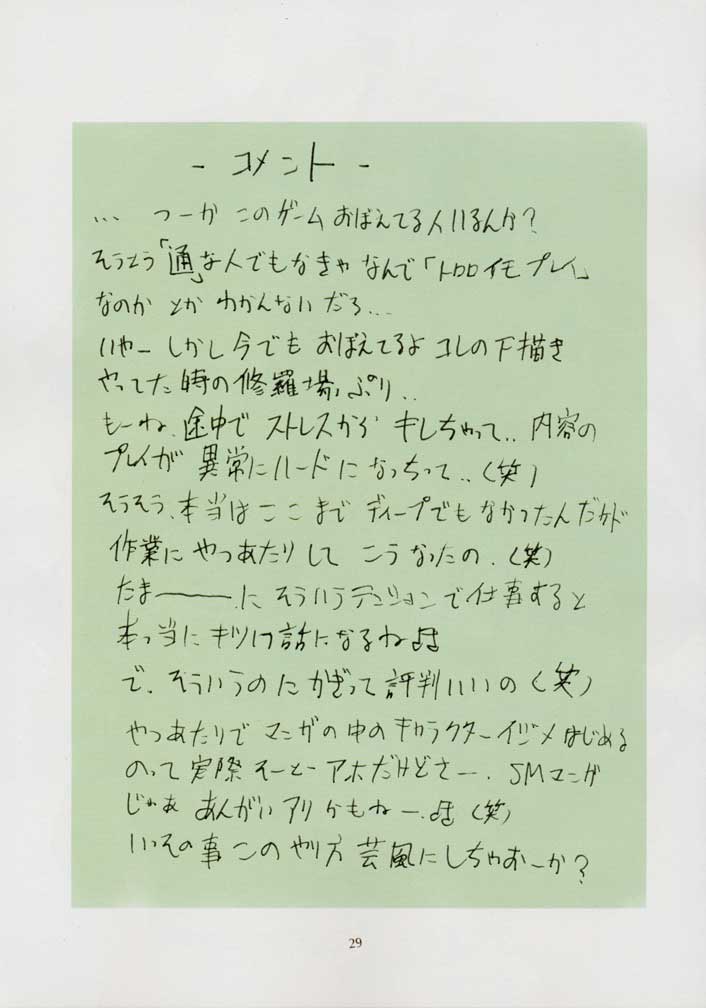 - コメント -
… つーか このゲーム おぼえてる人 いるんか？
そうとう「通」な人でもなきゃ なんで「トロロイモプレイ」
なのか とか わかんないだろ…
いやー しかし 今でも おぼえてるよ コレの下描き
やってた 時の 修羅場っぷり‥
もーね、途中で ストレスから キレちゃって‥ 内容の
プレイが 異常にハードに なっちって‥（笑）
そうそう、本当は ここまで ディープでもなかったんだけど
作業に やつあたりして こうなったの.（笑）
たま―――.に そういうテンションで 仕事すると
本っ当に キツい話になるね♪♪
で、そういうのに かぎって 評判いいの（笑）
やつあたりで マンガの中の キャラクターイジメ はじめる
のって 実際 そーとー アホだけどさー. SMマンガ
じゃあ あんがい アリ かもねー.♪♪（笑）
いっその事 このやり方 芸風にしちゃおーか？
29